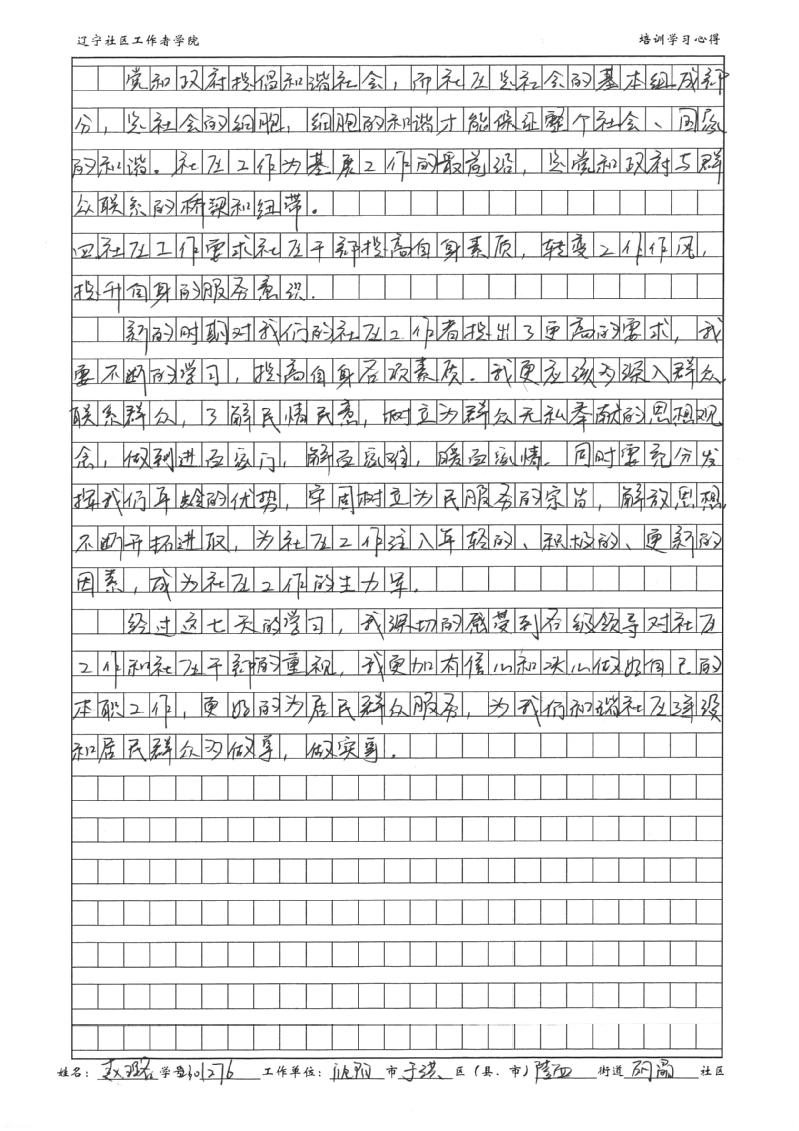 辽宁社区工作者学院 培训学习心得
党和政府提倡和谐社会，而社区是社会的基本组成部
分，是社会的细胞，细胞的和谐才能保证整个社会、国家
的和谐。社区工作为基层工作的最前沿，是党和政府与群
众联系的桥梁和纽带。
四社区工作要求社区干部提高自身素质，转变工作作风，
提升自身的服务意识.
新的时期对我们的社区工作者提出了更高的要求，我
要不断的学习，提高自身各项素质.我更应该多深入群众，
联系群众，了解民情民意，树立为群众无私奉献的思想观
念，做到进百家门，解百家难，暖百家情.同时要充分发
挥我们年龄的优势，牢固树立为民服务的宗旨，解放思想
不断开拓进取，为社区工作注入年轻的、积极的、更新的
因素，成为社区工作的生力军.
经过这七天的学习，我深切的感受到各级领导对社区
工作和社区干部的重视，我更加有信心和决心做好自己的
本职工作，更好的为居民群众服务，为我们和谐社区建设
和居民群众多做事，做实事.
姓名： 赵 学号 01276 工作单位： 沈阳 市 于洪 区（县、市） 陵西 街道 社区